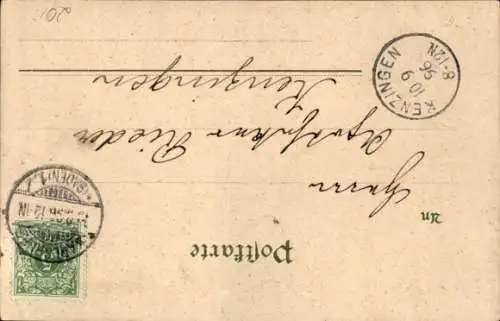 Postkarte
An
Herrn
Apotheker Rieder
Kenzingen
KENZINGEN
10 9
96
8-12N.
(BADEN)
201